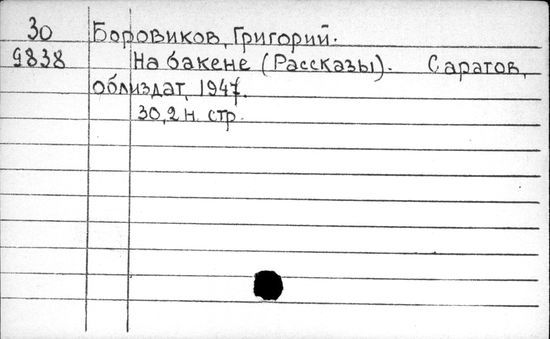 30 Боровиков, Григорий.
9838 На бакене (Рассказы). Саратов,
облиздат, 1947.
30,2 н. стр.